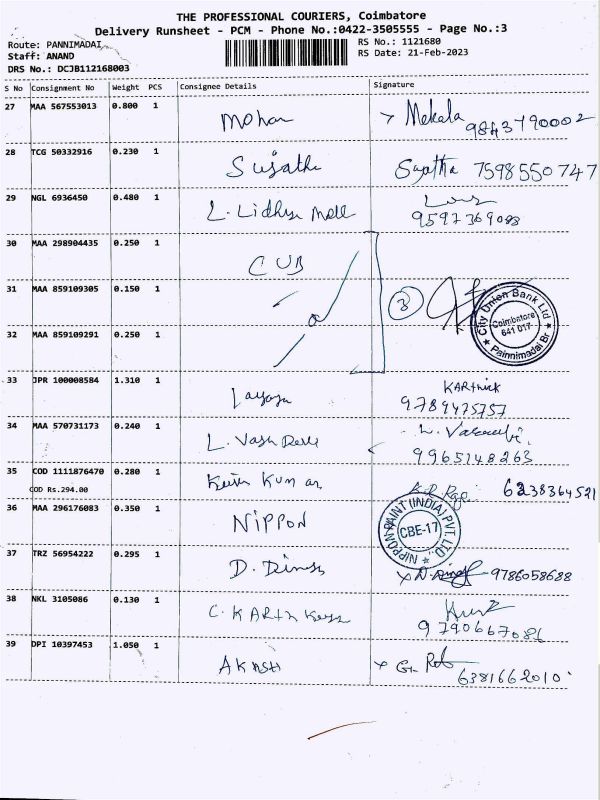 THE PROFESSIONAL COURIERS, Coimbatore
Delivery Runsheet - PCM - Phone No.:0422-3505555 - Page No.:3
Route: PANNIMADAI
Staff: ANAND
DRS No.: DCJB112168003
RS No.: 1121680
RS Date: 21-Feb-2023
S No Consignment No Weight PCS Consignee Details Signature
27 MAA 567553013 0.800 1 Mohan Mekala
9843790002
28 TCG 50332916 0.230 1 Sujatha Sujatha 7598550747
29 NGL 6936450 0.480 1 L. Lidhya
9597369088
30 MAA 298904435 0.250 1 CUB
31 MAA 859109305 0.150 1 3
City Union Bank Ltd
Coimbatore
641 017
Pannimadai Br.
32 MAA 859109291 0.250 1
33 JPR 100008584 1.310 1 KARthick
9789475757
34 MAA 570731173 0.240 1 L.
9965148263
35 COD 1111876470 0.280 1 Kumar 6238364521
COD Rs.294.00
36 MAA 296176083 0.350 1 NIPPON
NIPPON PAINT (INDIA) PVT. LTD.
CBE-17
37 TRZ 56954222 0.295 1 D. 9786058688
38 NKL 3105086 0.130 1 C. KARth
9790667086
39 DPI 10397453 1.050 1 AKASH
6381662010